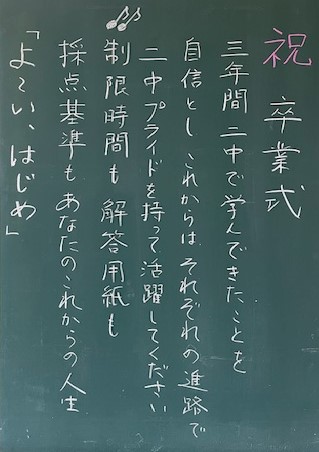 祝 卒業式
三年間 二中で学んできたことを
自信とし これからは それぞれの進路で
二中プライドを持って 活躍してください
制限時間も 解答用紙も
採点基準も あなたのこれからの人生
「よ〜い、はじめ」